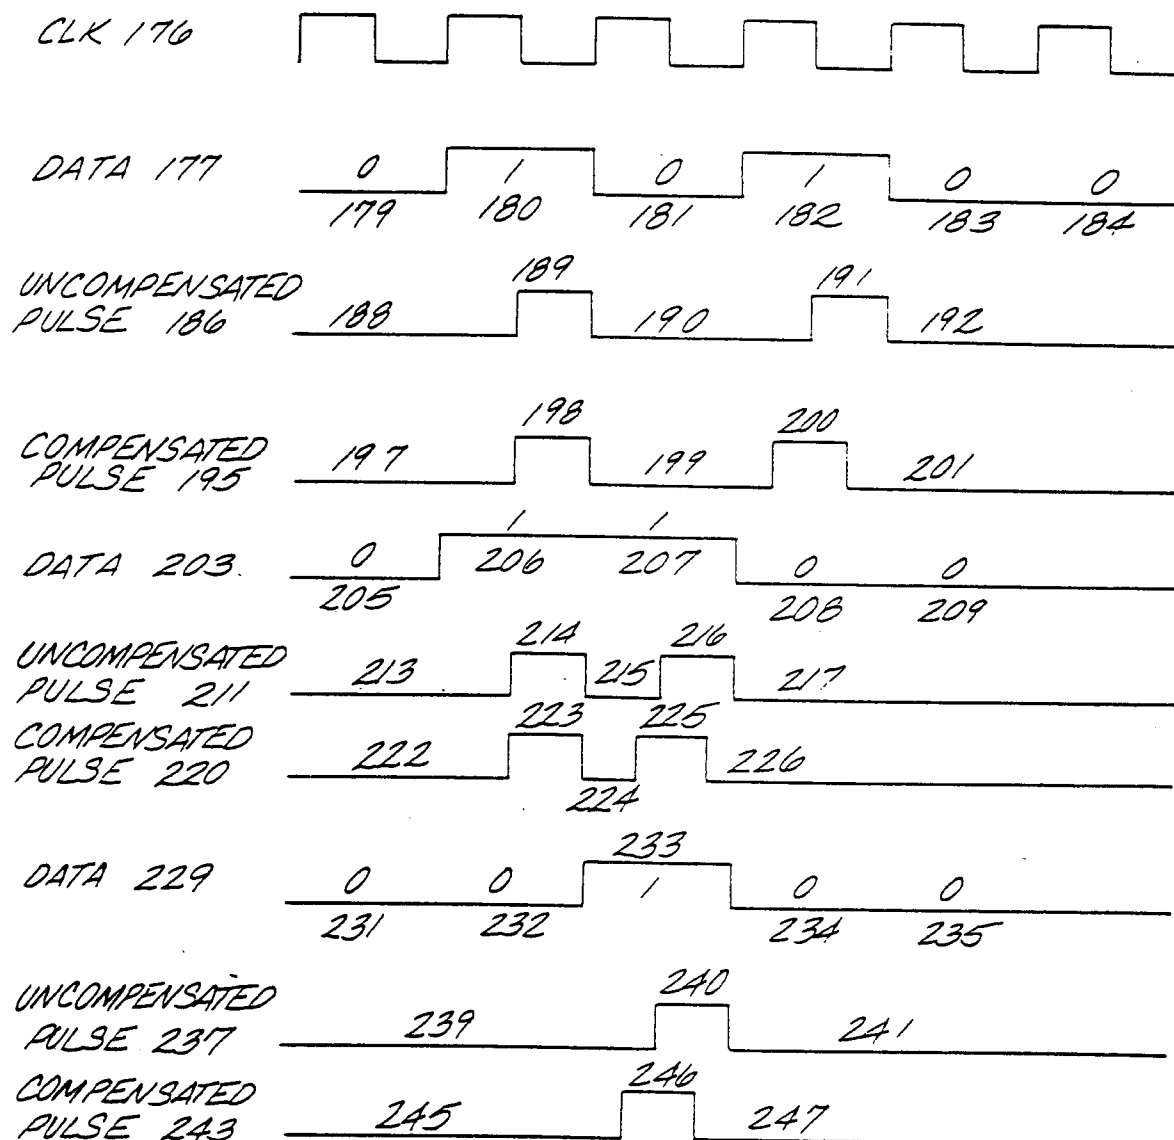 CLK 176
DATA 177
0 1 0 1 0 0
179 180 181 182 183 184
UNCOMPENSATED
PULSE 186
188 189 190 191 192
COMPENSATED
PULSE 195
197 198 199 200 201
DATA 203.
0 1 1 0 0
205 206 207 208 209
UNCOMPENSATED
PULSE 211
213 214 215 216 217
COMPENSATED
PULSE 220
222 223 224 225 226
DATA 229
0 0 1 0 0
231 232 233 234 235
UNCOMPENSATED
PULSE 237
239 240 241
COMPENSATED
PULSE 243
245 246 247